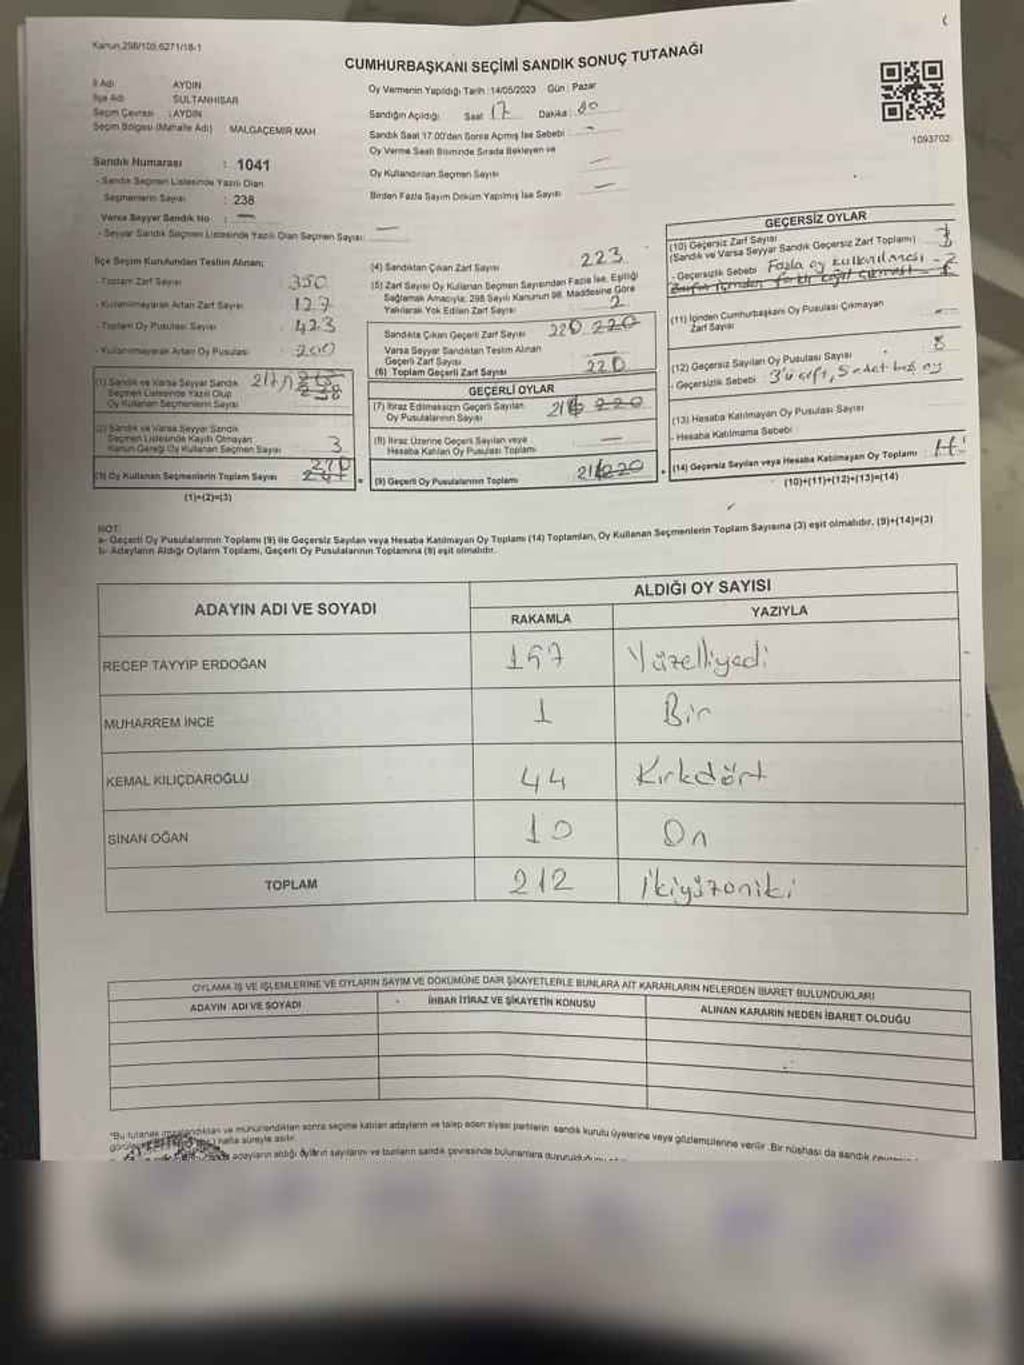 Kanun,298/103,6271/18-1
CUMHURBAŞKANI SEÇİMİ SANDIK SONUÇ TUTANAĞI
İl Adı AYDIN
İlçe Adı SULTANHİSAR
Seçim Çevresi : AYDIN
Seçim Bölgesi (Mahalle Adı) MALGAÇEMİR MAH.
Oy Vermenin Yapıldığı Tarih :14/05/2023 Gün : Pazar
Sandığın Açıldığı Saat 17 Dakika:
Sandık Saat 17.00'den Sonra Açmış İse Sebebi -
Oy Verme Saati Bitiminde Sırada Bekleyen ve
Oy Kullandırılan Seçmen Sayısı —
Birden Fazla Sayım Döküm Yapılmış İse Sayısı —
1093702
Sandık Numarası : 1041
- Sandık Seçmen Listesinde Yazılı Olan
Seçmenlerin Sayısı : 238
Varsa Seyyar Sandık No : —
- Seyyar Sandık Seçmen Listesinde Yazılı Olan Seçmen Sayısı: —
İlçe Seçim Kurulundan Teslim Alınan;
- Toplam Zarf Sayısı 350
- Kullanılmayarak Artan Zarf Sayısı 127
- Toplam Oy Pusulası Sayısı 423
- Kullanılmayarak Artan Oy Pusulası 200
(1) Sandık ve Varsa Seyyar Sandık
Seçmen Listesinde Yazılı Olup
Oy Kullanan Seçmenlerin Sayısı
(2) Sandık ve Varsa Seyyar Sandık
Seçmen Listesinde Kayıtlı Olmayan
Kanun Gereği Oy Kullanan Seçmen Sayısı 3
(3) Oy Kullanan Seçmenlerin Toplam Sayısı
(1)+(2)=(3)
(4) Sandıktan Çıkan Zarf Sayısı 223
(5) Zarf Sayısı Oy Kullanan Seçmen Sayısından Fazla İse, Eşitliği
Sağlamak Amacıyla; 298 Sayılı Kanunun 98. Maddesine Göre
Yakılarak Yok Edilen Zarf Sayısı 2
Sandıkta Çıkan Geçerli Zarf Sayısı 220 220
Varsa Seyyar Sandıktan Teslim Alınan
Geçerli Zarf Sayısı —
(6) Toplam Geçerli Zarf Sayısı 220
GEÇERLİ OYLAR
(7) İtiraz Edilmeksizin Geçerli Sayılan
Oy Pusulalarının Sayısı 220
(8) İtiraz Üzerine Geçerli Sayılan veya
Hesaba Katılan Oy Pusulası Toplamı —
(9) Geçerli Oy Pusulalarının Toplamı 220
GEÇERSİZ OYLAR
(10) Geçersiz Zarf Sayısı
(Sandık ve Varsa Seyyar Sandık Geçersiz Zarf Toplamı)
- Geçersizlik Sebebi Fazla oy kullanılması - 2
(11) İçinden Cumhurbaşkanı Oy Pusulası Çıkmayan
Zarf Sayısı —
(12) Geçersiz Sayılan Oy Pusulası Sayısı 8
- Geçersizlik Sebebi 3'ü çift, 5 adet boş oy
(13) Hesaba Katılmayan Oy Pusulası Sayısı
- Hesaba Katılmama Sebebi :
(14) Geçersiz Sayılan veya Hesaba Katılmayan Oy Toplamı
(10)+(11)+(12)+(13)=(14)
NOT:
a- Geçerli Oy Pusulalarının Toplamı (9) ile Geçersiz Sayılan veya Hesaba Katılmayan Oy Toplamı (14) Toplamları, Oy Kullanan Seçmenlerin Toplam Sayısına (3) eşit olmalıdır. (9)+(14)=(3)
b- Adayların Aldığı Oyların Toplamı, Geçerli Oy Pusulalarının Toplamına (9) eşit olmalıdır.
ADAYIN ADI VE SOYADI
ALDIĞI OY SAYISI
RAKAMLA YAZIYLA
RECEP TAYYİP ERDOĞAN 157 Yüzelliyedi
MUHARREM İNCE 1 Bir
KEMAL KILIÇDAROĞLU 44 Kırkdört
SİNAN OĞAN 10 On
TOPLAM 212 İkiyüzoniki
OYLAMA İŞ VE İŞLEMLERİNE VE OYLARIN SAYIM VE DÖKÜMÜNE DAİR ŞİKAYETLERLE BUNLARA AİT KARARLARIN NELERDEN İBARET BULUNDUKLARI
ADAYIN ADI VE SOYADI İHBAR İTİRAZ VE ŞİKAYETİN KONUSU ALINAN KARARIN NEDEN İBARET OLDUĞU
*Bu tutanak imzalandıktan ve mühürlendikten sonra seçime katılan adayların ve talep eden siyasi partilerin sandık kurulu üyelerine veya gözlemcilerine verilir. Bir nüshası da sandık
hafta süreyle asılır.
adayların aldığı oyların sayılarını ve bunların sandık çevresinde bulunanlara